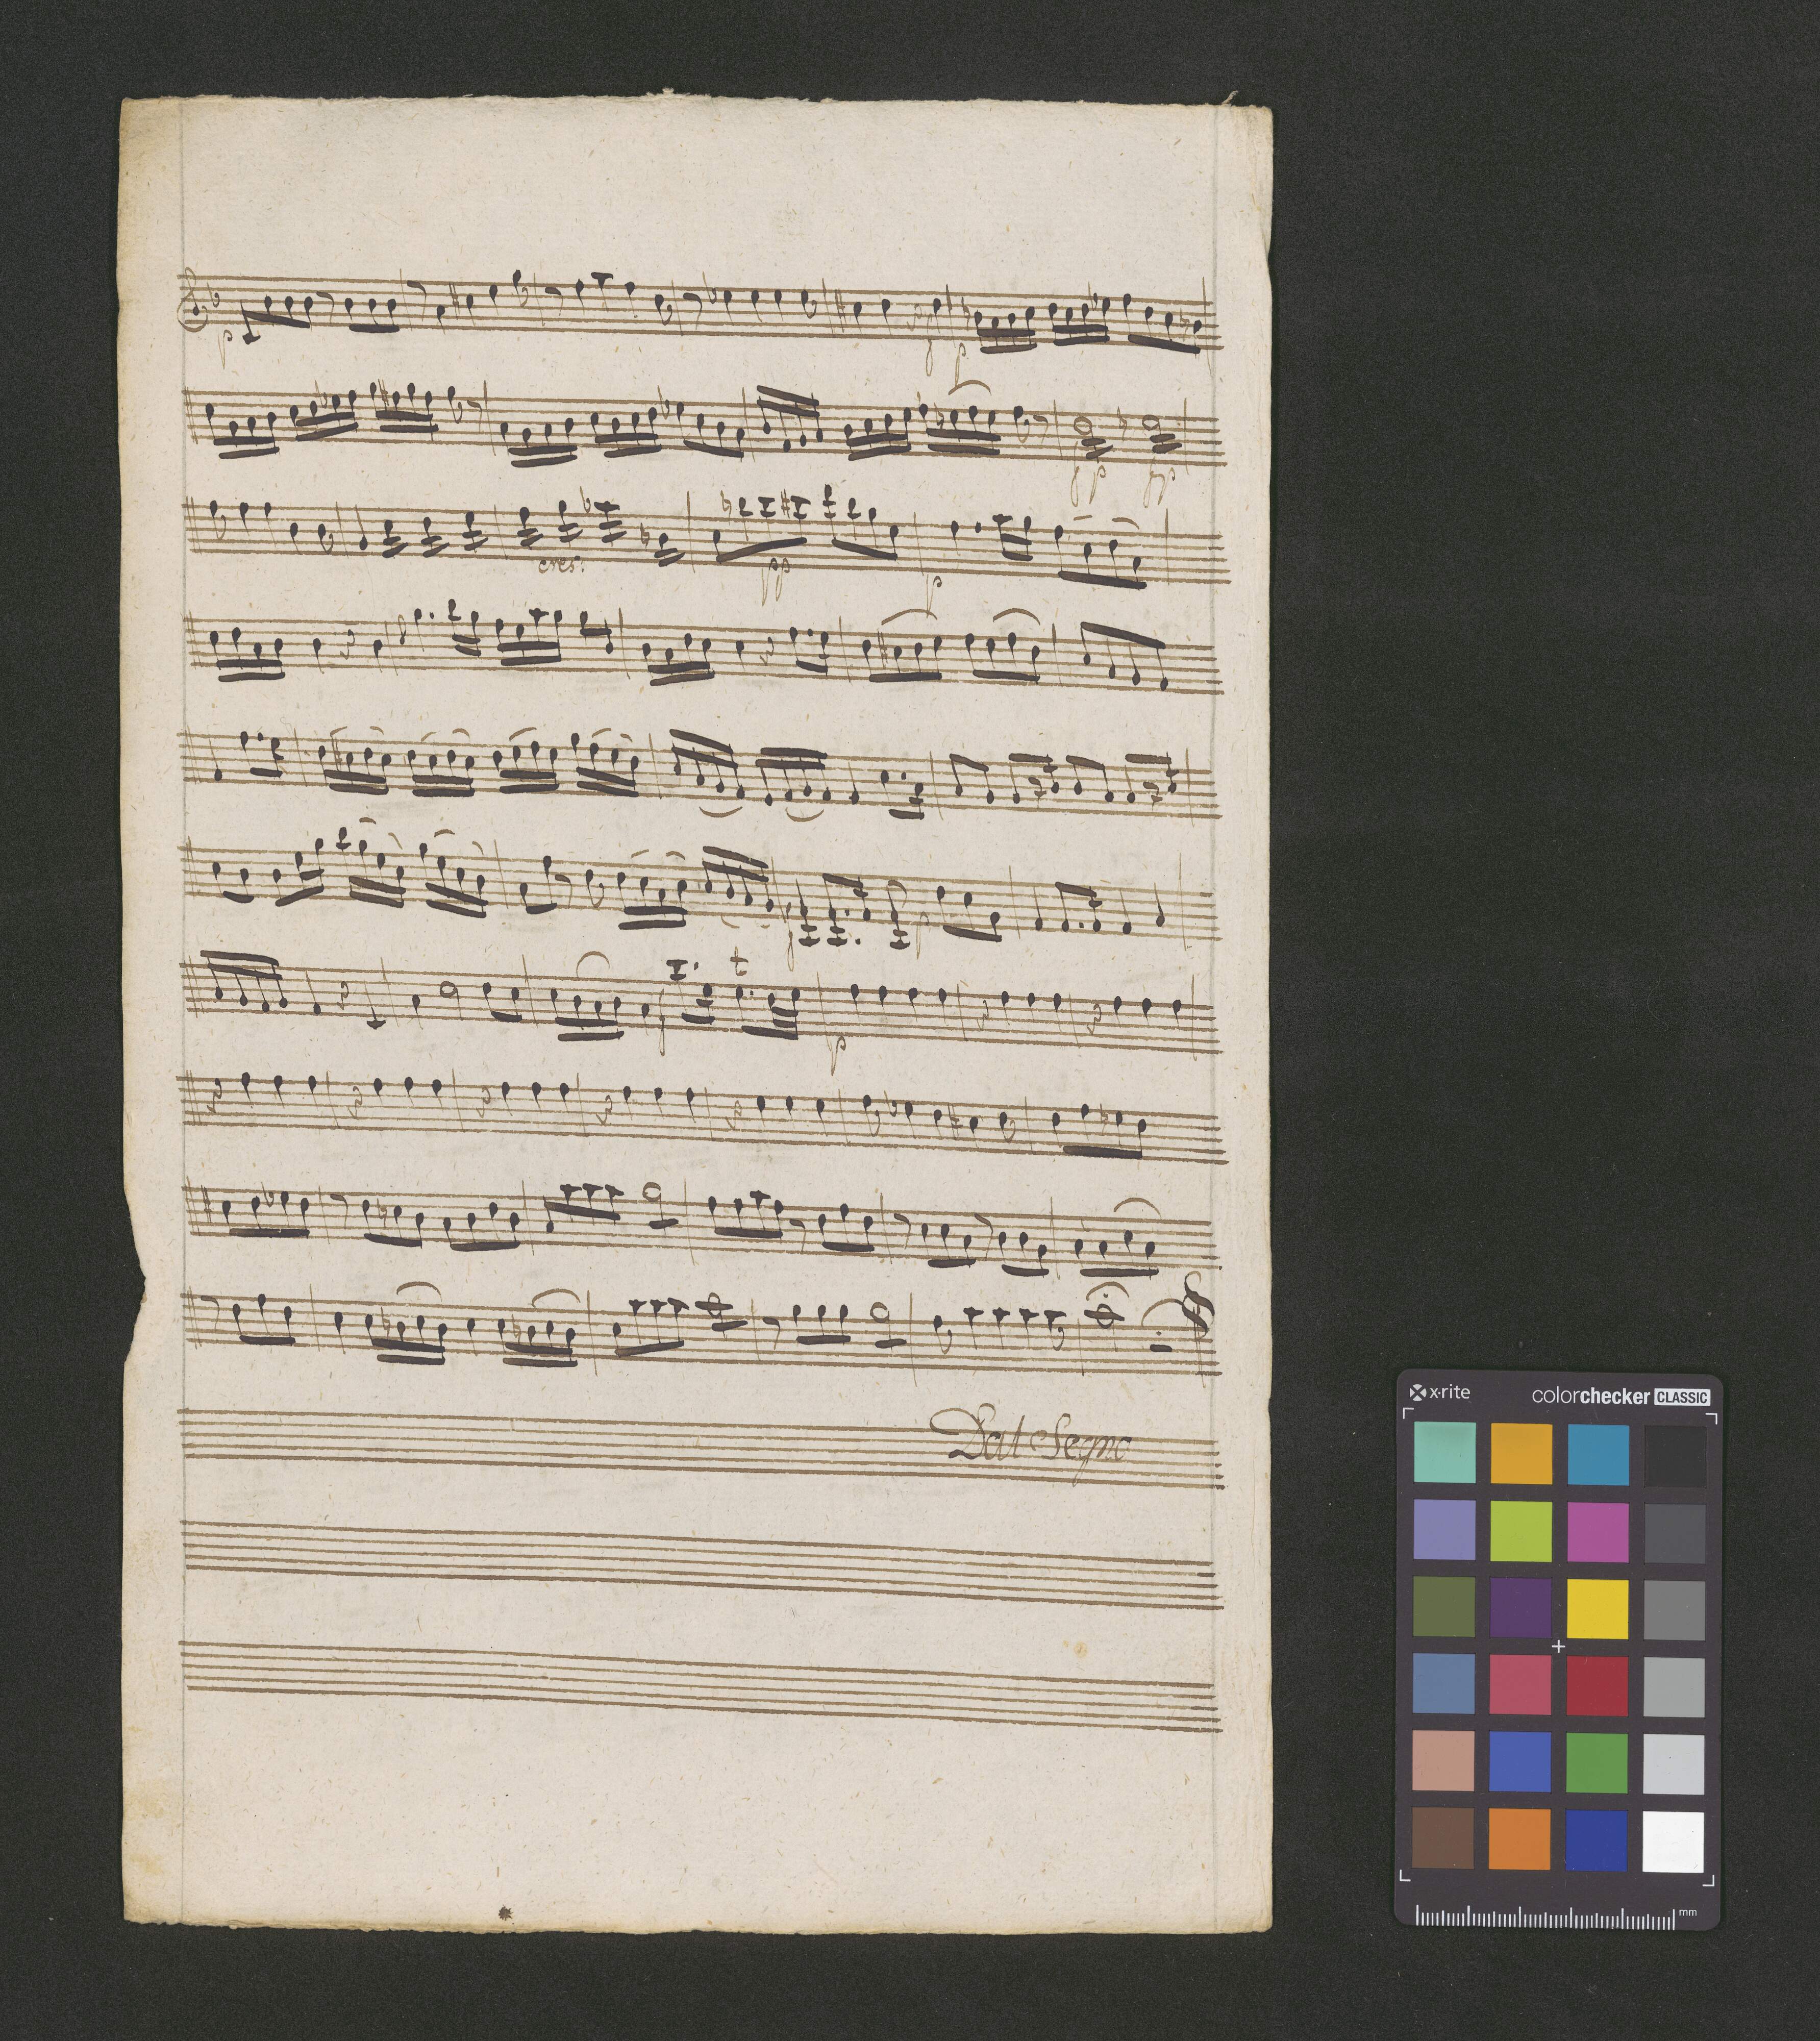 p
f p
fp fp
cres: pp p
f p
t
f p
Dal Segno
x·rite colorchecker CLASSIC
mm